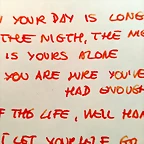 YOUR DAY IS LONG
THE NIGTH, THE
IS YOURS ALONE
YOU ARE SURE YOU'VE
HAD ENOUGH
OF THIS LIFE, WELL HAN
LET YOUR LIFE GO